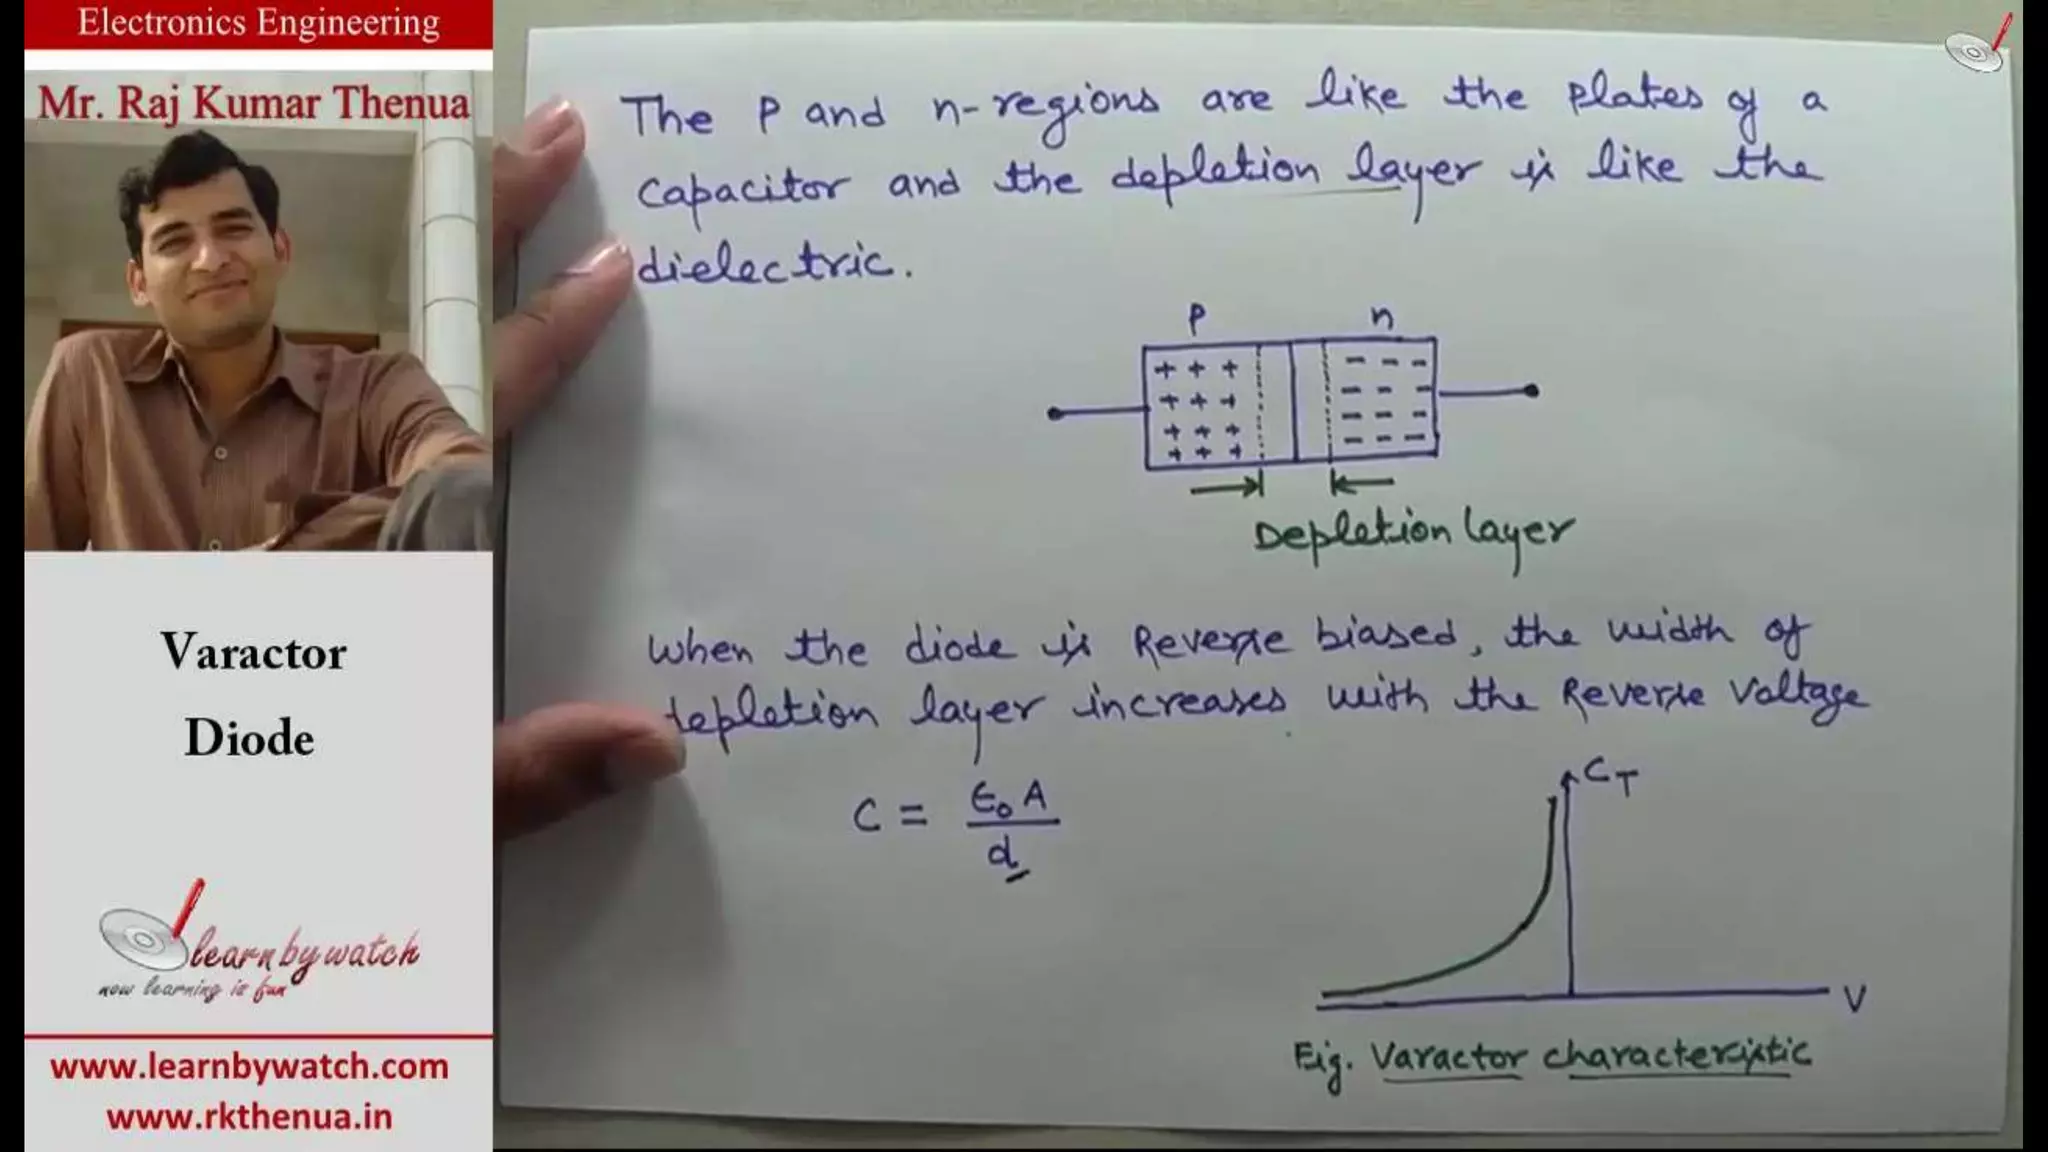 Electronics Engineering
Mr. Raj Kumar Thenua
Varactor
Diode
learnbywatch
now learning is fun
www.learnbywatch.com
www.rkthenua.in
The P and n-regions are like the plates of a
capacitor and the depletion layer is like the
dielectric.
P n
+ + + - - -
+ + + - - -
+ + + - - -
+ + + - - -
Depletion layer
When the diode is Reverse biased, the width of
depletion layer increases with the Reverse Voltage
C = ϵ₀ A / d
C_T
V
Fig. Varactor characteristic